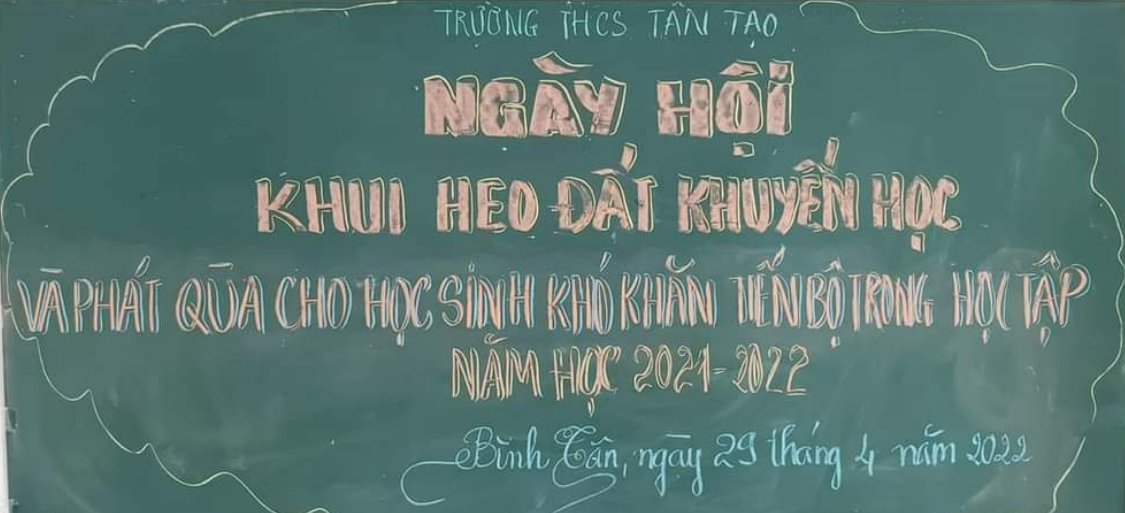 TRƯỜNG THCS TÂN TẠO
NGÀY HỘI
KHUI HEO ĐẤT KHUYẾN HỌC
VÀ PHÁT QÙA CHO HỌC SINH KHÓ KHĂN TIẾN BỘ TRONG HỌC TẬP
NĂM HỌC 2021-2022
Bình Tân, ngày 29 tháng 4 năm 2022